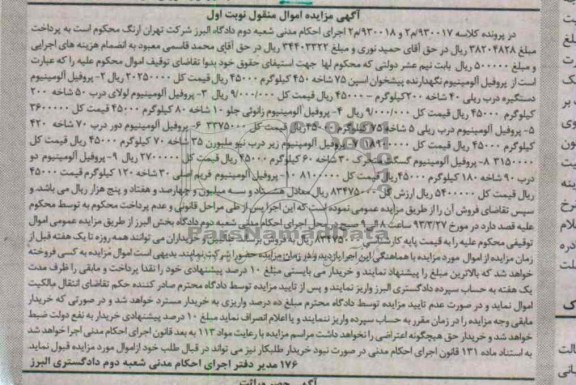 آگهی مزایده اموال منقول نوبت اول
در پرونده کلاسه ۹۳۰۰۱۷م۲ و ۹۳۰۰۱۸م۲ اجرای احکام مدنی شعبه دوم دادگاه البرز شرکت تهران ارنگ محکوم است به پرداخت
مبلغ ۳۸۲۰۴۸۲۸ ریال در حق آقای حمید نوری و مبلغ ۳۴۴۰۳۲۲۲ ریال در حق آقای محمد قاسمی معبود به انضمام هزینه های اجرایی
و مبلغ ۵۰۰۰۰۰ ریال بابت نیم عشر دولتی که محکوم لها جهت استیفای حقوق خود بدوا تقاضای توقیف اموال محکوم علیه را که عبارت
است از پروفیل آلومینیوم نگهدارنده پیشخوان اسپن ۷۵ شاخه ۴۵۰ کیلوگرم ۴۵۰۰۰ ریال قیمت کل ۲۰۲۵۰۰۰۰ ریال ۲- پروفیل آلومینیوم
دستگیره درب ریلی ۴۰ شاخه ۲۰۰کیلوگرم ۴۵۰۰۰ ریال قیمت کل ۹/۰۰۰/۰۰۰ ریال ۳- پروفیل آلومینیوم لولای درب ۵۰ شاخه ۲۰۰
کیلوگرم ۴۵۰۰۰ ریال قیمت کل ۹/۰۰۰/۰۰۰ ریال ۴- پروفیل آلومینیوم زانوئی جلو ۱۰ شاخه ۸۰ کیلوگرم ۴۵۰۰۰ قیمت کل ۳۶۰۰۰۰۰
۵- پروفیل آلومینیوم درب ریلی ۵ شاخه ۷۵ کیلوگرم ۴۵۰۰۰ ریال قیمت کل ۳۳۷۵۰۰۰ ۶- پروفیل آلومینیوم دور درب ۷۰ شاخه ۴۲۰
کیلوگرم ۴۵۰۰۰ ریال قیمت کل ۱۸۹۰۰۰۰۰ ۷- پروفیل آلومینیوم زیر درب نیو ملبورن ۳۵ شاخه ۷۰ کیلوگرم ۴۵۰۰۰ ریال
۳۱۵۰۰۰۰ ۸- پروفیل آلومینیوم متحرک ۳۰ شاخه ۶۰ کیلوگرم ۴۵۰۰۰ ریال قیمت کل ۲۷۰۰۰۰۰ ریال ۹- پروفیل آلومینیوم دو
درب ۹۰ شاخه ۱۸۰ کیلوگرم ۴۵۰۰۰ ریال قیمت کل ۸۱۰۰۰۰۰ ۱۰- پروفیل آلومینیوم فریم اصلی ۳۰ شاخه ۱۲۰ کیلوگرم قیمت ۴۵۰۰۰
ریال قیمت کل ۵۴۰۰۰۰۰ ریال ارزش کل ۸۳۴۷۵۰۰۰ ریال معادل هشتاد و سه میلیون و چهارصد و هفتاد و پنج هزار ریال می باشد. و
سپس تقاضای فروش آن را از طریق مزایده عمومی نموده است که این اجرا پس از طی مراحل قانونی و عدم پرداخت محکوم به توسط محکوم
علیه قصد دارد در مورخ ۹۳/۲/۲۷ ساعت ۸ الی در محل اجرای احکام مدنی شعبه دوم دادگاه بخش البرز از طریق مزایده عمومی اموال
توقیفی محکوم علیه را به قیمت پایه کارشناسی ۸۳۴۷۵۰۰۰ ریال به فروش برساند طالبین و خریداران می توانند همه روزه تا یک هفته قبل از
زمان مزایده از اموال مورد مزایده با هماهنگی این اجرا بازدید و در زمان مزایده حضور شرکت نمایند. بدیهی است اموال مزایده به کسی فروخته
خواهد شد که بالاترین مبلغ را پیشنهاد نمایند و خریدار می بایستی مبلغ ۱۰ درصد پیشنهادی خود را نقدا پرداخت و مابقی را ظرف مدت
یک هفته به حساب سپرده دادگستری البرز واریز نمایند و پس از تایید مزایده توسط دادگاه محترم صادر کننده حکم تقاضای انتقال مالکیت
اموال نماید و در صورت عدم تایید مزایده توسط دادگاه محترم مبلغ ده درصد واریزی به خریدار مسترد خواهد شد و در صورتی که خریدار
مابقی وجه مزایده را در زمان مقرر به حساب سپرده واریز ننماید و یا اعلام انصراف نماید مبلغ ۱۰ درصد پیشنهادی خریدار به نفع دولت ضبط
خواهد شد و خریدار حق هیچگونه اعتراضی را نخواهد داشت مراسم مزایده با رعایت مواد ۱۱۳ به بعد قانون اجرای احکام مدنی اجرا خواهد شد
به استناد ماده ۱۳۱ قانون اجرای احکام مدنی در صورت نبود خریدار طلبکار نیز می تواند در قبال طلب خود از اموال مورد مزایده قبول نماید.
۱۷۶ مدیر دفتر اجرای احکام مدنی شعبه دوم دادگستری البرز